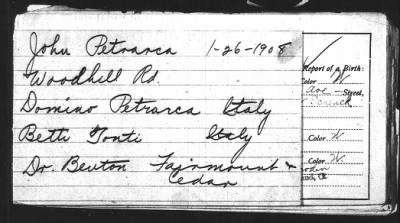 John Petrarca 1-26-1908
Woodhill Rd.
Domino Petrarca Italy
Betti Tonti Italy
Dr. Benton Fairmount &
Cedar
Report of a Birth:
Color W
Ave Street,
Color W.
Color W.